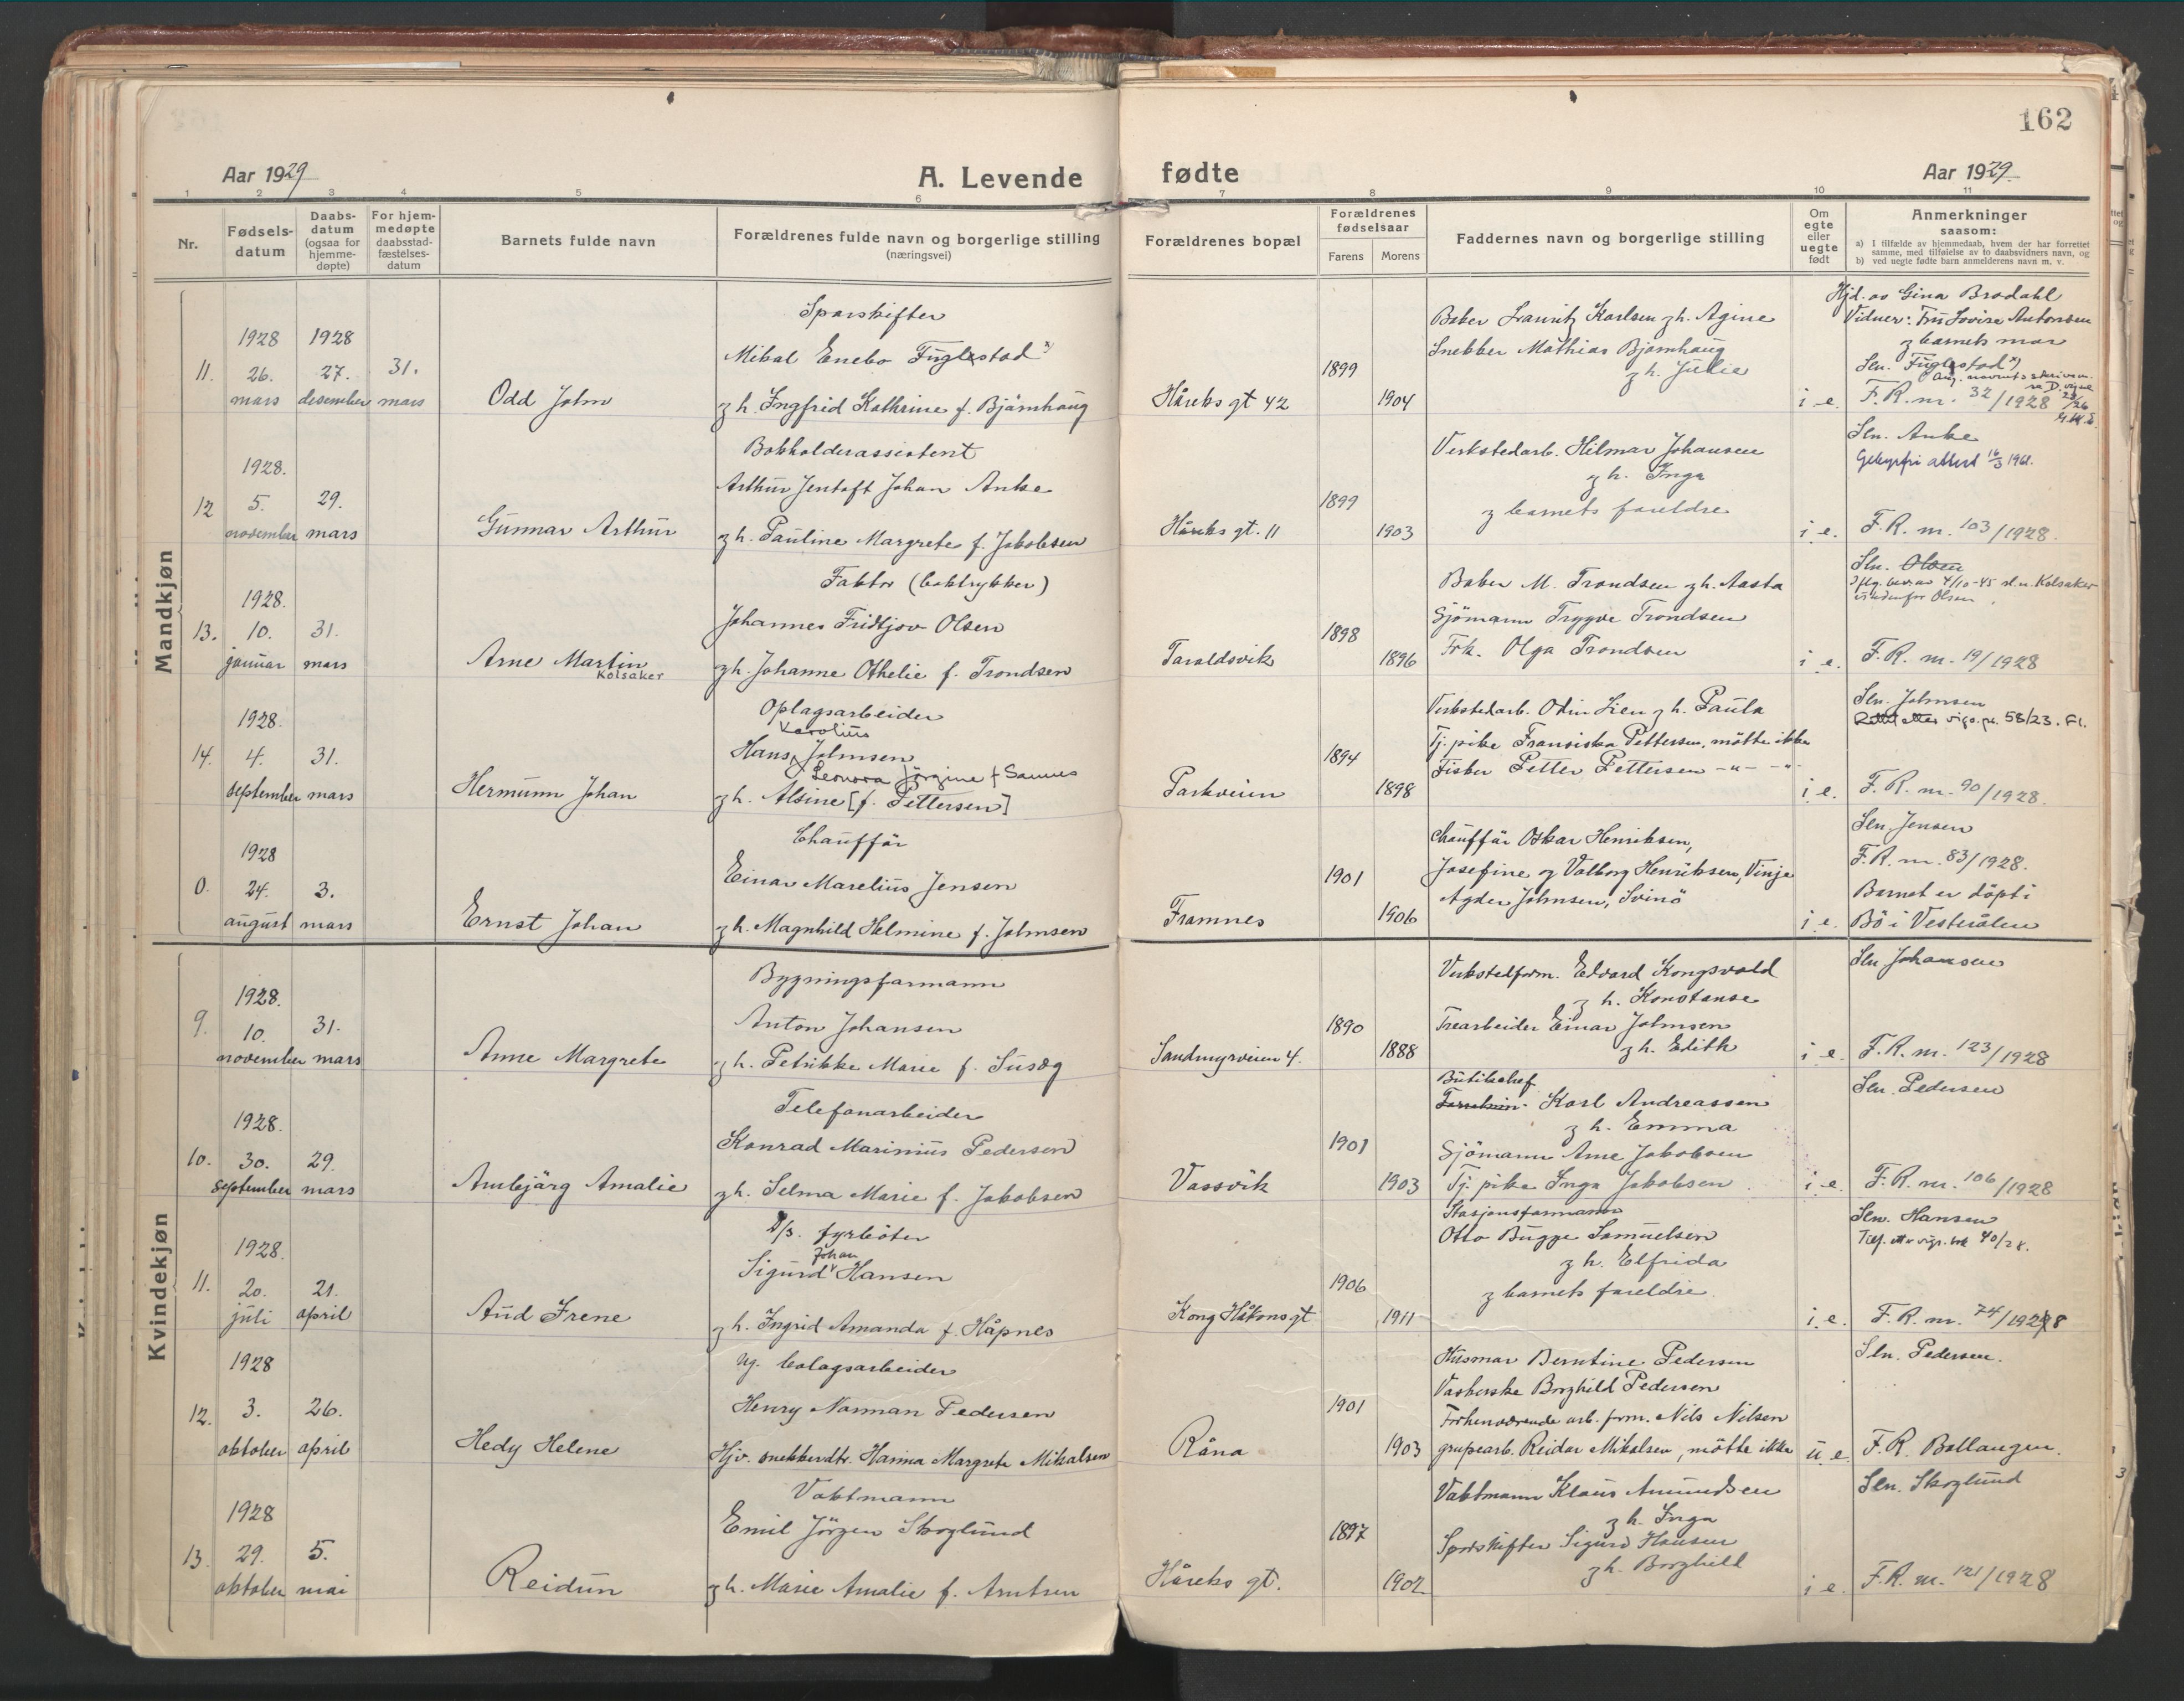 162
Aar 1929
A. Levende
fødte
Aar 1929.
1 2 3 4 5 6 7 8 9 10 11
Nr.
Fødsels-
datum
Daabs-
datum
(ogsaa for
hjemme-
døpte)
For hjem-
medøpte
daabsstad-
fæstelses-
datum
Barnets fulde navn
Forældrenes fulde navn og borgerlige stilling
(næringsvei)
Forældrenes bopæl
Forældrenes
fødselsaar
Farens Morens
Faddernes navn og borgerlige stilling
Om
egte
eller
uegte
født
Anmerkninger
saasom:
a) I tilfælde av hjemmedaab, hvem der har forrettet
samme, med tilføielse av to daabsvidners navn, og
b) ved uegte fødte barn anmelderens navn m. v.
Mandkjøn
11.
1928
26.
mars
1928
27.
desember
31.
mars
Odd John
Sporskifter
Mikal Enebo Fuglestad x)
g h. Ingfrid Kathrine f. Bjørnhaug
Håreks gt 42
1899
1904
Baker Lauritz Karlsen g h. Agine
Snekker Mathias Bjørnhaug
g h. Julie
i e.
Hjd. av Gina Brodahl
Vidner: Fru Lovise Antonsen
g barnets mor
Sln. Fuglestad x)
F. R. nr. 32/1928
12
1928.
5.
november
29.
mars
Gunnar Arthur
Bokholderassistent
Arthur Jentoft Johan Anke
g h. Pauline Margrete f. Jakobsen
Håreks gt. 11
1899
1903
Verkstedarb. Hilmar Johansen
g h. Inga
g barnets foreldre
i e.
Sln. Anke
Gebyrfri attest 16/3 1961.
F. R. nr. 103/1928.
13.
1928.
10.
januar
31.
mars
Arne Martin
Kolsaker
Faktor (boktrykker)
Johannes Fridtjov Olsen
g h. Johanne Othelie f. Trondsen
Taraldsvik
1898
1896
Baker M. Trondsen g h. Aasta
Sjömann Tryggve Trondsen
Frk. Olga Trondsen
i e.
Sln. Olsen
Iflg. bev. av 4/10-45 sl.n. Kolsaker
istedenfor Olsen
F. R. nr. 19/1928
14.
1928.
4.
september
31.
mars
Hermunn Johan
Oplagsarbeider
Karolius
Hans Johnsen
Leonora Jörgine f Sannes
g h. Alsine [f. Pettersen]
Parkveien
1894
1898
Verkstedarb. Odin Lien g h. Paula
Tj. pike Fransiska Pettersen, mötte ikke
Fisker Petter Pettersen -"- -"-
i e.
Sln. Johnsen
Rettet etter vigs. pr. 58/23. Fl.
F. R. nr. 90/1928.
0.
1928
24.
august
3.
mars
Ernst Johan
Chauffør
Einar Marelius Jensen
g h. Magnhild Helmine f. Johnsen
Framnes
1901
1906
Chauffør Oskar Henriksen,
Josefine og Valborg Henriksen, Vinje
Agder Johnsen, Svinö
i e.
Sln. Jensen
F. R. nr. 83/1928.
Barnet er döpt i
Bö i Vesterålen
Kvindekjøn
9.
1928.
10.
november
31.
mars
Anne Margrete
Bygningsformann
Anton Johansen
g h. Petrikke Marie f. Susæg
Sandmyrveien 4.
1890
1888
Verkstedform. Edvard Kongsvold
g h. Konstanse
Trearbeider Einar Johnsen
g h. Edith
i e.
Sln Johansen
F. R. nr. 123/1928
10.
1928.
30.
september
29.
mars
Annbjørg Amalie
Telefonarbeider
Konrad Marinius Pedersen
g h. Selma Marie f. Jakobsen
Vassvik
1901
1903
Butikchef
Karl Andreassen
g h. Emma
Sjömann Arne Jakobsen
Tj. pike Inga Jakobsen
i e.
Sln. Pedersen
F. R. nr. 106/1928
11.
1928.
20.
juli
21.
april
Aud Irene
D/s. fyrböter
Johan
Sigurd Hansen
g h. Ingrid Amanda f. Håpnes
Kong Håkons gt
1906
1911
Stasjonsformann
Otto Bugge Samuelsen
g h. Elfrida
g barnets foreldre.
i e.
Sln. Hansen
Tilf. ett. vigs. bok 40/28.
F. R. nr. 74/1928
12.
1928
3.
oktober
26.
april
Hedy Helene
Ug. bolagsarbeider
Henry Norman Pedersen
Hjv. snekkerdtr. Hanna Margrete Mikalsen
Råna
1901
1903
Husmor Berntine Pedersen
Vaskerske Borghild Pedersen
Forhenværende arb. form. Nils Nilsen
grupearb. Reidar Mikalsen, mötte ikke
u e
Sln. Pedersen.
F. R. Ballangen.
13.
1928
29.
oktober
5.
mai
Reidun
Vaktmann
Emil Jörgen Skoglund
g h. Marie Amalie f. Arntsen
Håreks gt.
1897
1902
Vaktmann Klaus Amundsen
g h. Inga
Sporskifter Sigurd Hansen
g h. Borghild
i e.
Sln. Skoglund
F. R. nr. 121/1928